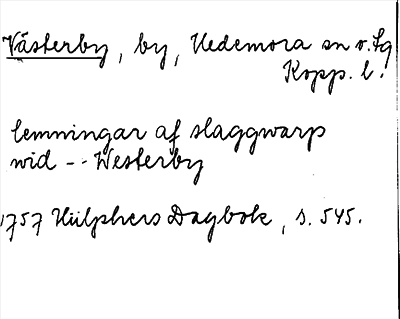 Västerby, by, Hedemora sn o. Lg
Kopp. l.
lemningar af slaggwarp
wid -- Westerby
1757 Hülphers Dagbok, s. 545.